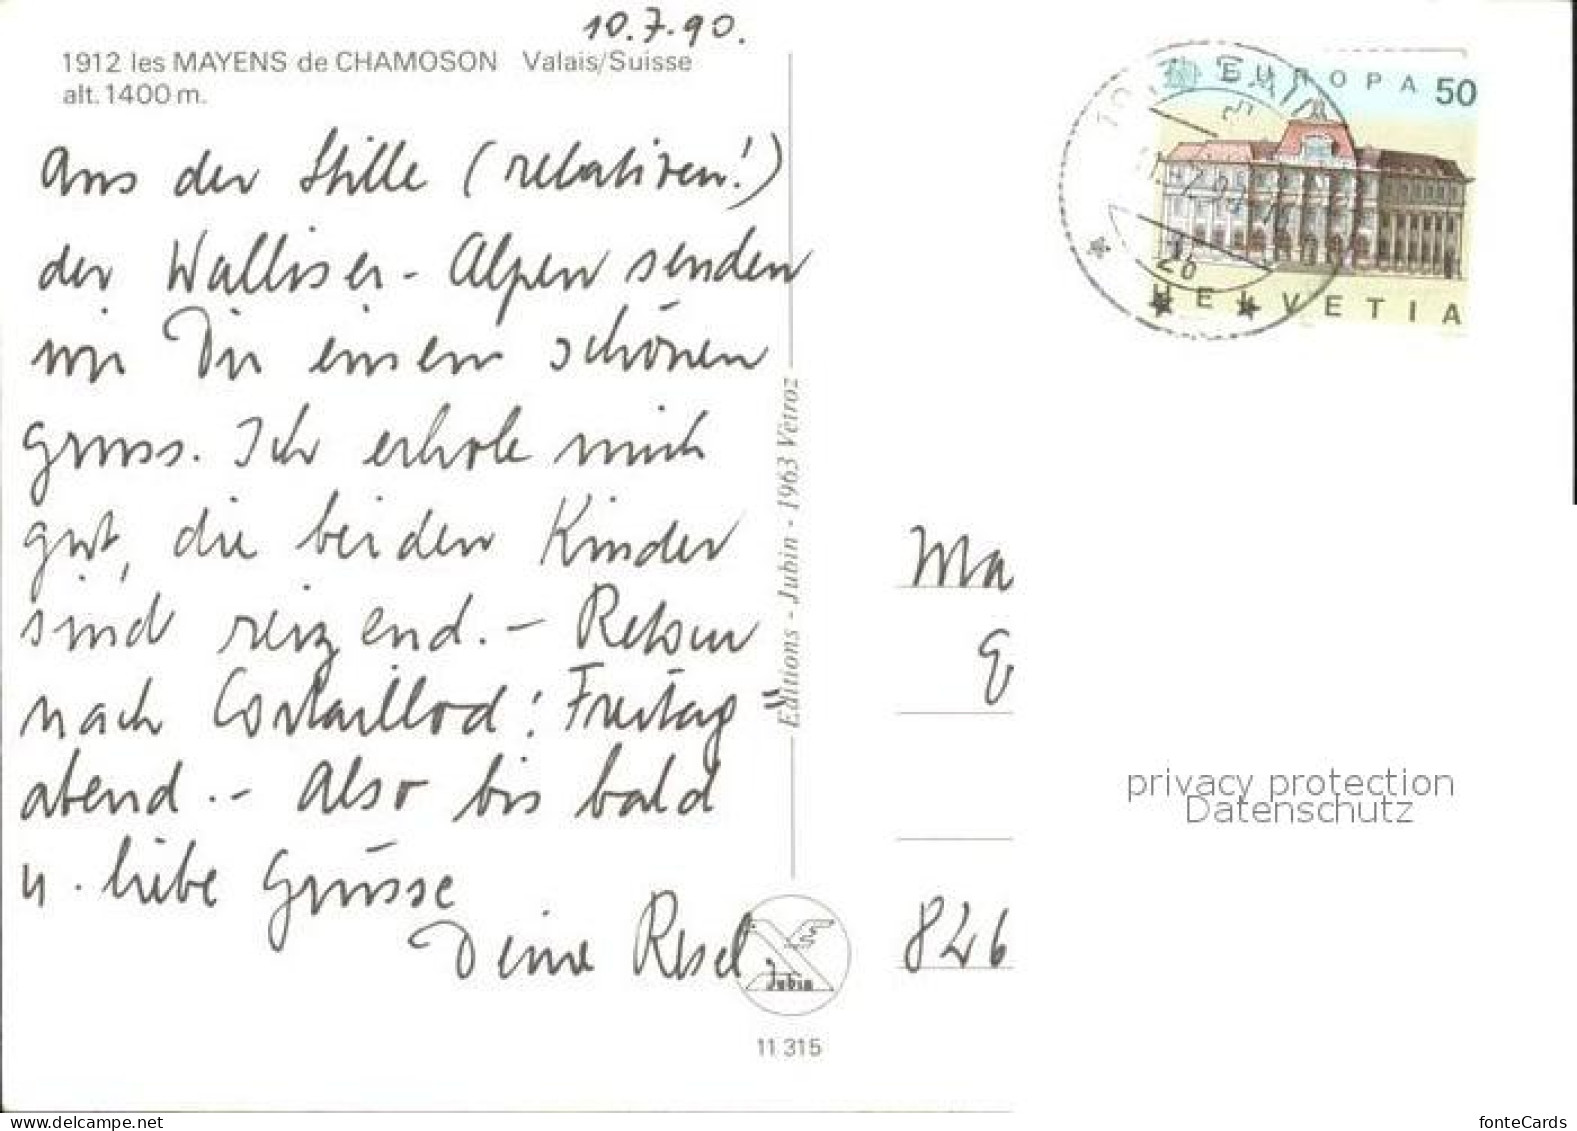 10.7.90.
1912 les MAYENS de CHAMOSON Valais/Suisse
alt. 1400 m.
Aus der Stille (relativen!)
der Walliser-Alpen senden
wir Dir einen schönen
Gruss. Ich erhole mich
gut, die beiden Kinder
sind reizend. – Retour
nach Cortaillod: Freitag=
abend. – Also bis bald
u. liebe Grüsse
Deine Resel.
Editions - Jubin - 1963 Vétroz
Jubin
11 315
EUROPA 50
HELVETIA
Ma
E
826
privacy protection
Datenschutz
www.delcampe.net
fonteCards